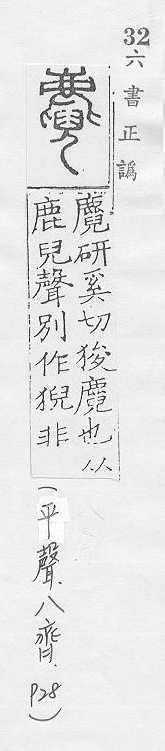 32
六書正譌
麑研奚切狻麑也从
鹿兒聲別作猊非
(平聲、八齊、P28)